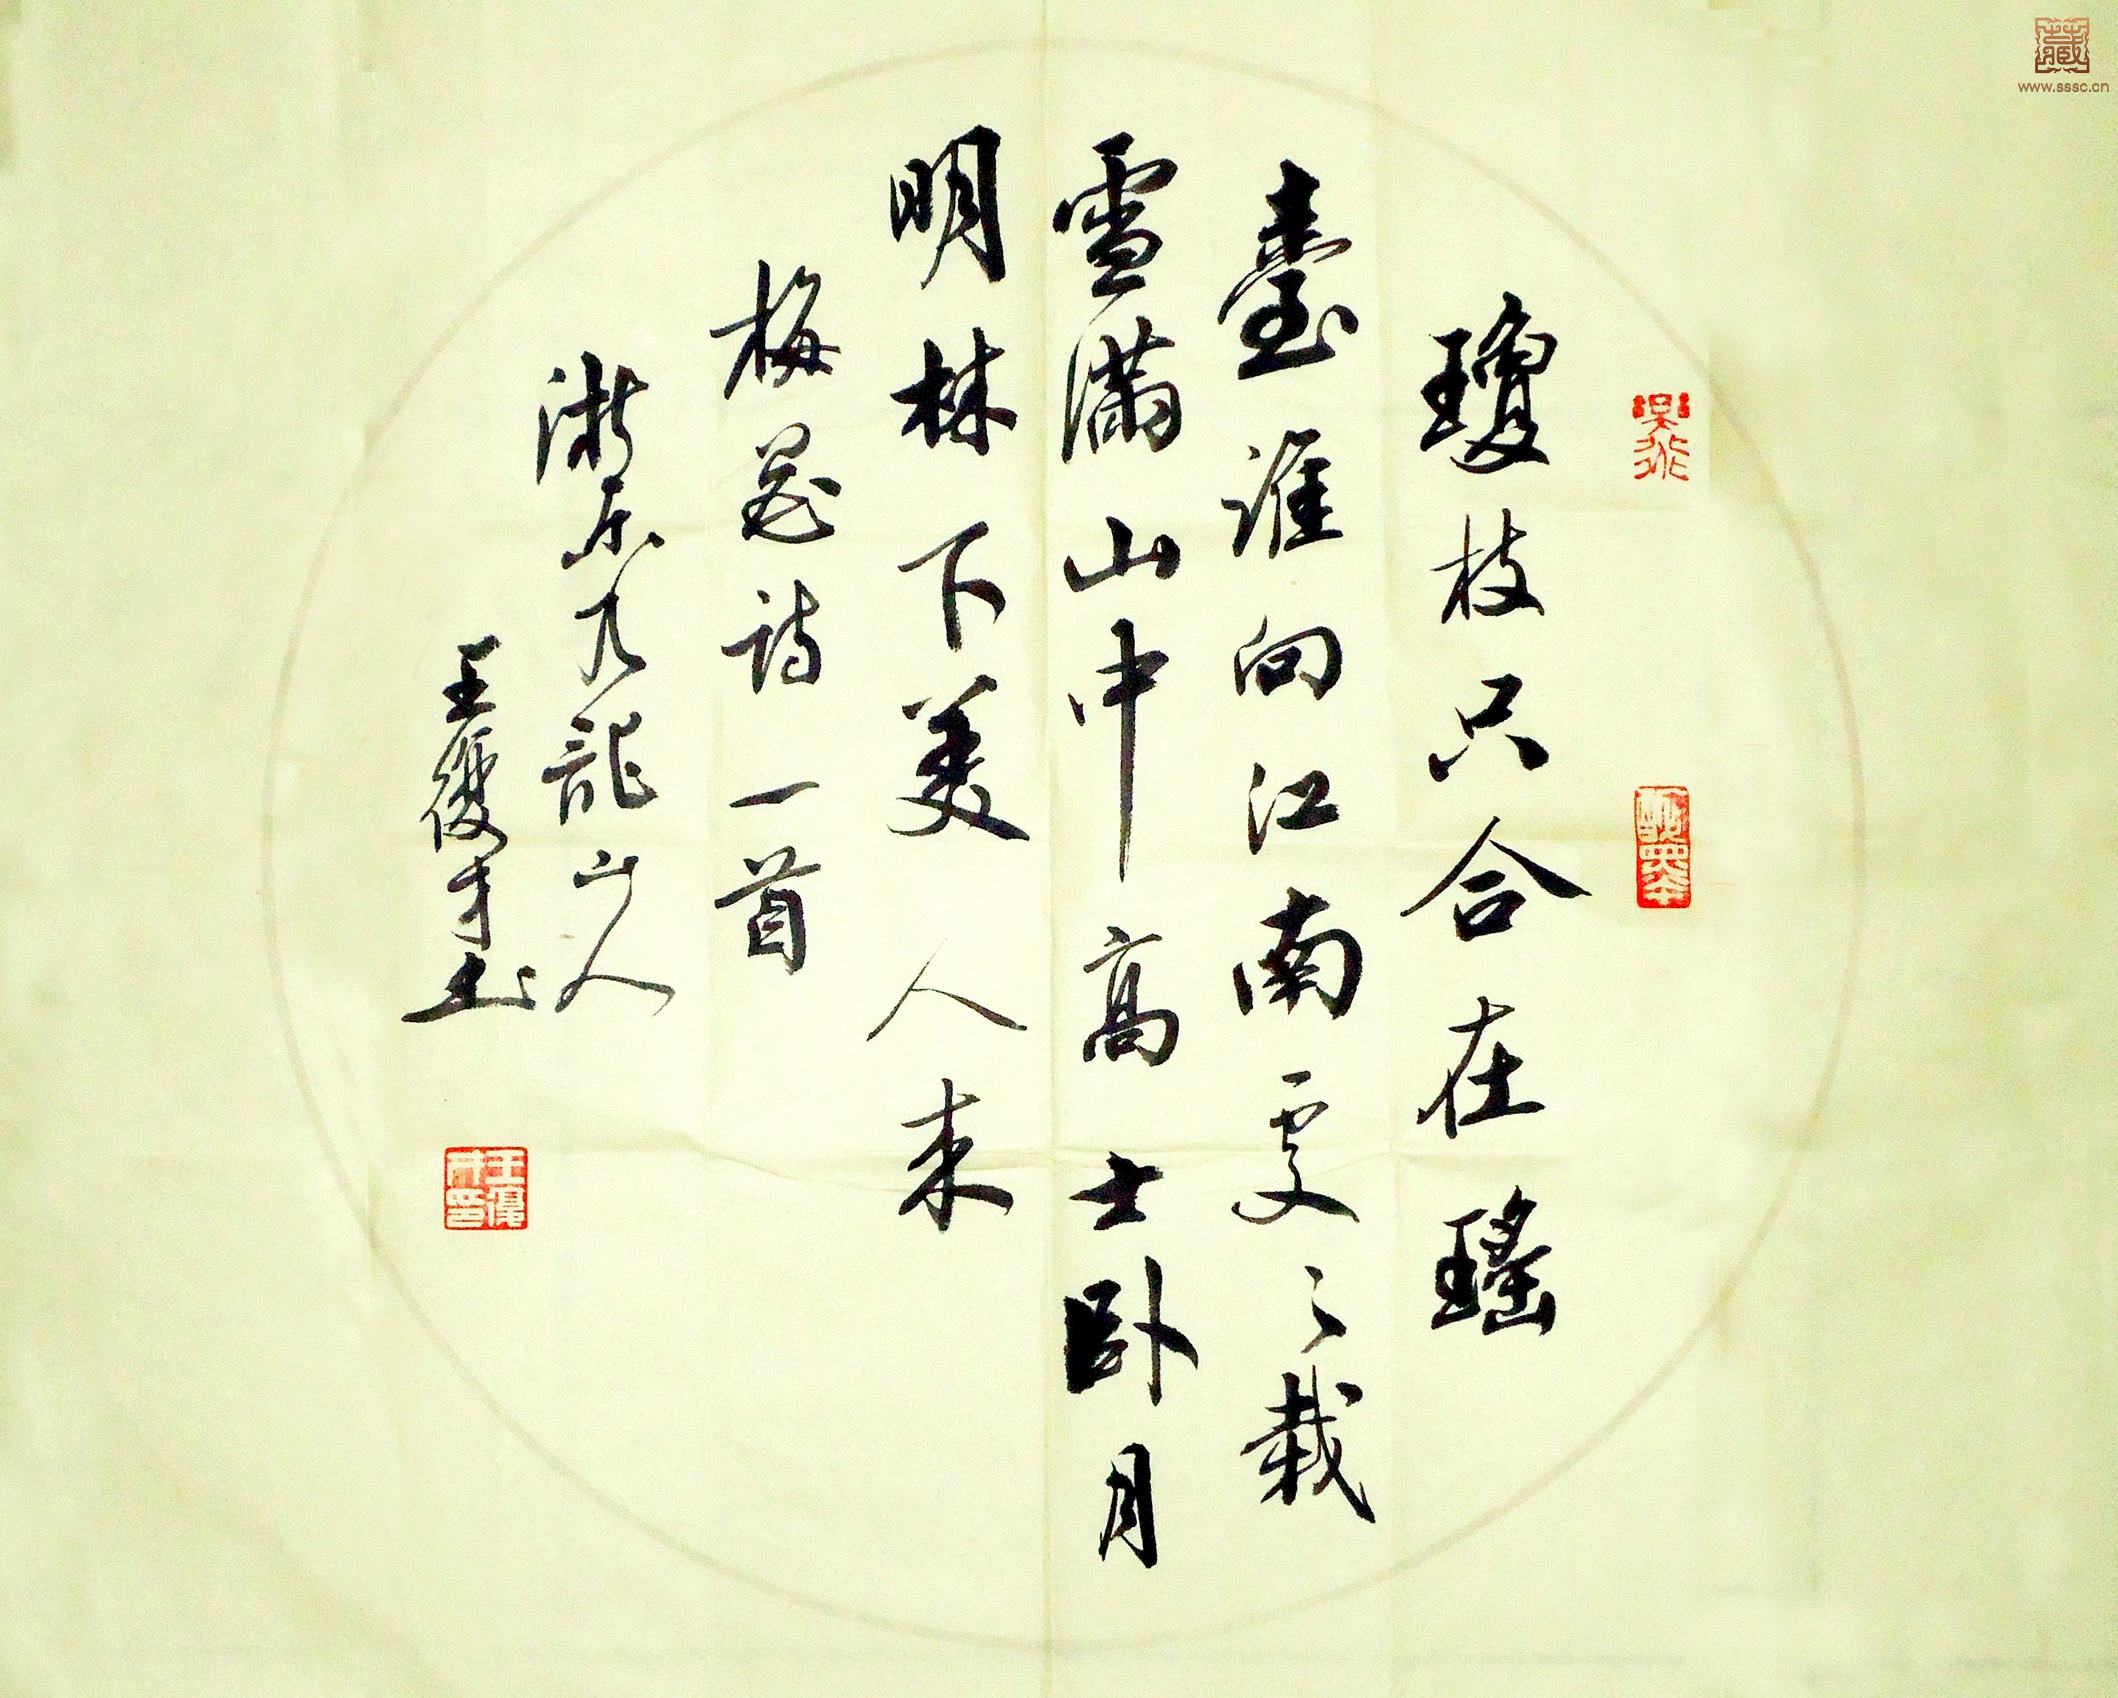 瓊枝只合在瑤
臺誰向江南處處栽
雪滿山中高士臥月
明林下美人來
梅花詩一首
浙東九龍山人
王俊才书
王俊才印
藏
www.sssc.cn